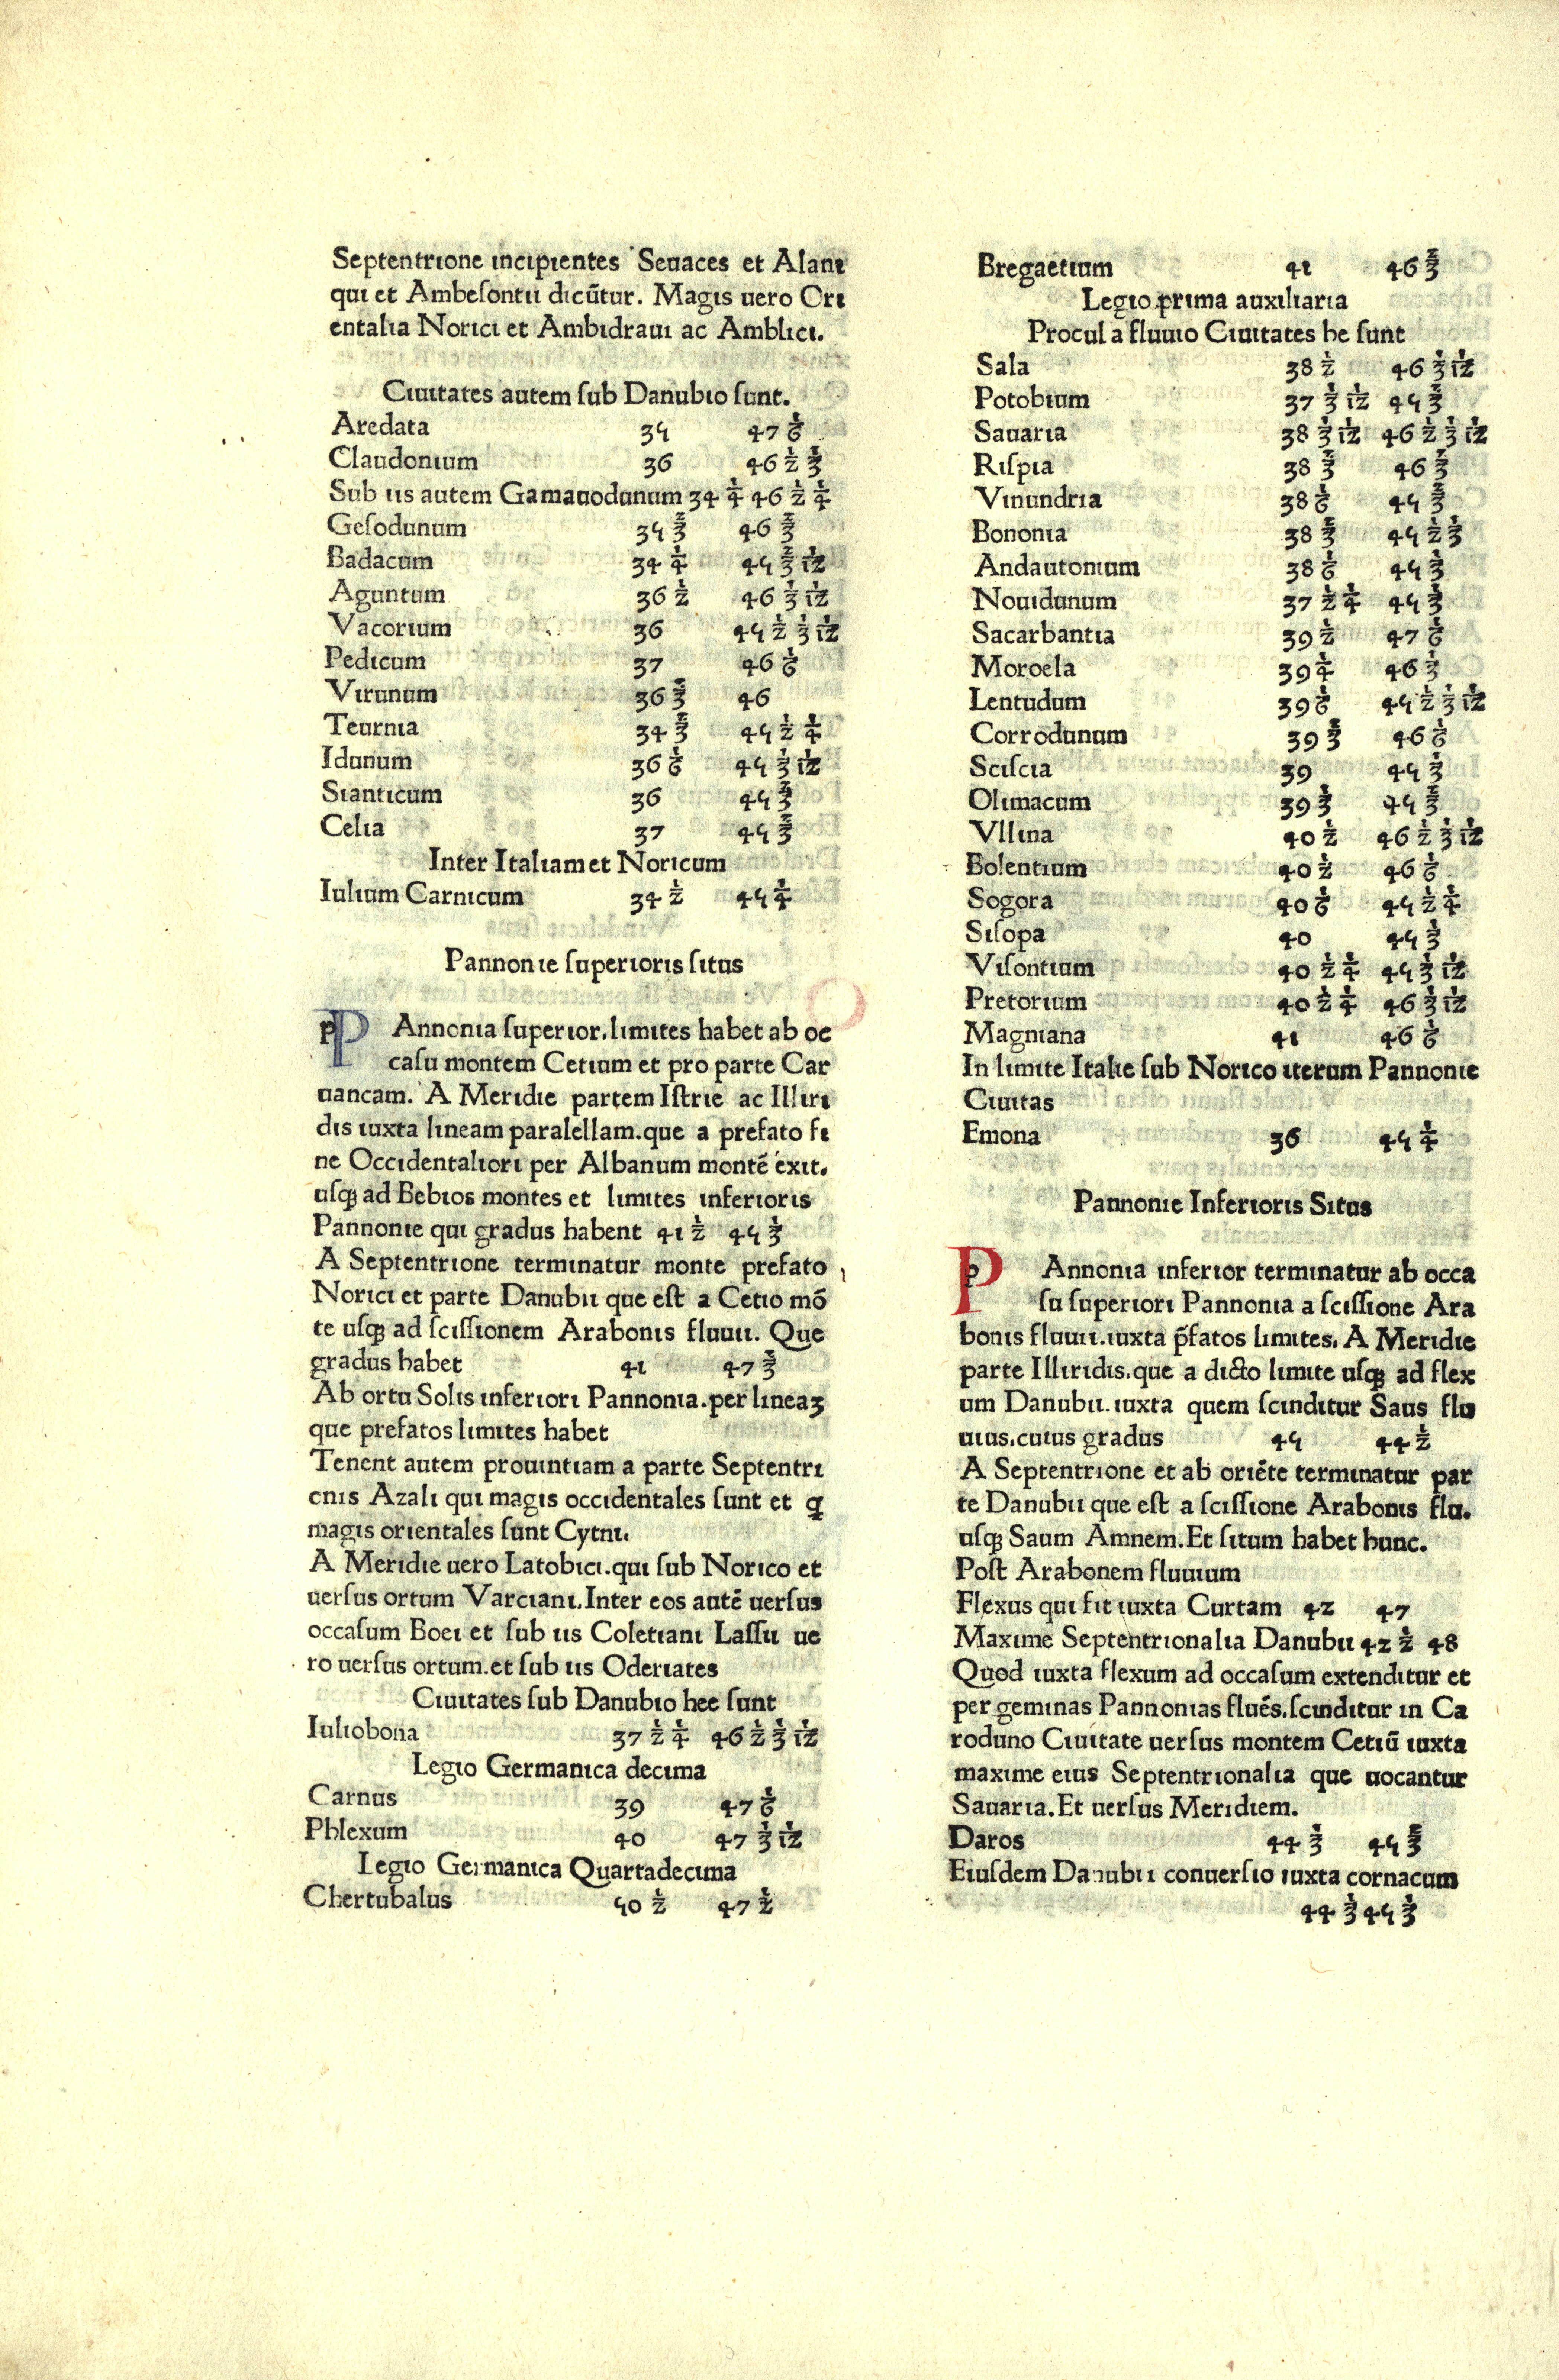 Septentrione incipientes Sevaces et Alani
qui et Ambesontii dicūtur. Magis uero Ori
entalia Norici et Ambidravi ac Amblici.
Civitates autem sub Danubio sunt.
Aredata 35 47 1/6
Claudonium 36 46 1/2 1/3
Sub iis autem Gamavodunum 34 1/4 46 1/2 1/4
Gesodunum 35 2/3 46 2/3
Badacum 34 1/4 45 2/3 1/12
Aguntum 36 1/2 46 1/3 1/12
Vacorium 36 45 1/2 1/3 1/12
Pedicum 37 46 1/6
Virunum 36 2/3 46
Teurnia 34 2/3 45 1/2 1/4
Idunum 36 1/6 45 1/3 1/12
Sianticum 36 45 2/3
Celia 37 45 2/3
Inter Italiam et Noricum
Iulium Carnicum 34 1/2 45 1/4
Pannonie superioris situs
PAnnonia superior. limites habet ab oc
casu montem Cetium et pro parte Car
uancam. A Meridie partem Istrie ac Illiri
dis iuxta lineam paralellam. que a prefato fi
ne Occidentaliori per Albanum montē exit.
usqꝫ ad Bebios montes et limites inferioris
Pannonie qui gradus habent 41 1/2 45 1/3
A Septentrione terminatur monte prefato
Norici et parte Danubii que est a Cetio mō
te usqꝫ ad scissionem Arabonis fluuii. Que
gradus habet 41 47 2/3
Ab ortu Solis inferiori Pannonia. per lineaꝫ
que prefatos limites habet
Tenent autem prouintiam a parte Septentri
onis Azali qui magis occidentales sunt et q̄
magis orientales sunt Cytni.
A Meridie uero Latobici. qui sub Norico et
uersus ortum Varciani. Inter eos autē uersus
occasum Boei et sub iis Coletiani Lassii ue
ro uersus ortum. et sub iis Oderiates
Civitates sub Danubio hee sunt
Iuliobona 37 1/2 1/4 46 1/2 1/3 1/12
Legio Germanica decima
Carnus 39 47 1/6
Phlexum 40 47 1/3 1/12
Legio Germanica Quartadecima
Chertubalus 50 1/2 47 1/2
Bregaetium 41 46 2/3
Legio prima auxiliaria
Procul a fluuio Civitates he sunt
Sala 38 1/2 46 1/3 1/12
Potobium 37 1/3 1/12 45 2/3
Savaria 38 1/3 1/12 46 1/2 1/3 1/12
Rispia 38 2/3 46 2/3
Vinundria 38 1/6 45 2/3
Bononia 38 2/3 45 1/2 1/3
Andautonium 38 1/6 45 1/3
Novidunum 37 1/2 1/4 45 1/3
Sacarbantia 39 1/2 47 1/6
Moroela 39 1/4 46 1/3
Lentudum 39 1/6 45 1/2 1/3 1/12
Corrodunum 39 2/3 46 1/6
Sciscia 39 45 1/3
Olimacum 39 1/3 45 2/3
Vllina 40 1/2 46 1/2 1/3 1/12
Bolentium 40 1/2 46 1/6
Sogora 40 1/6 45 1/2 1/4
Sisopa 40 45 1/3
Visontium 40 1/2 1/4 45 1/3 1/12
Pretorium 40 1/2 1/4 46 1/3 1/12
Magniana 41 46 1/6
In limite Italie sub Norico iterum Pannonie
Civitas
Emona 36 45 1/4
Pannonie Inferioris Situs
PAnnonia inferior terminatur ab occa
su superiori Pannonia a scissione Ara
bonis fluuii. iuxta p̄fatos limites. A Meridie
parte Illiridis. que a dicto limite usqꝫ ad flex
um Danubii. iuxta quem scinditur Saus flu
uius. cuius gradus 45 44 1/2
A Septentrione et ab oriēte terminatur par
te Danubii que est a scissione Arabonis flu.
usqꝫ Saum Amnem. Et situm habet hunc.
Post Arabonem fluuium
Flexus qui fit iuxta Curtam 42 47
Maxime Septentrionalia Danubii 42 1/2 48
Quod iuxta flexum ad occasum extenditur et
per geminas Pannonias fluēs. scinditur in Ca
roduno Civitate uersus montem Cetiū iuxta
maxime eius Septentrionalia que uocantur
Savaria. Et uersus Meridiem.
Daros 44 1/3 45 2/3
Eiusdem Danubii conuersio iuxta cornacum
44 1/3 45 1/3